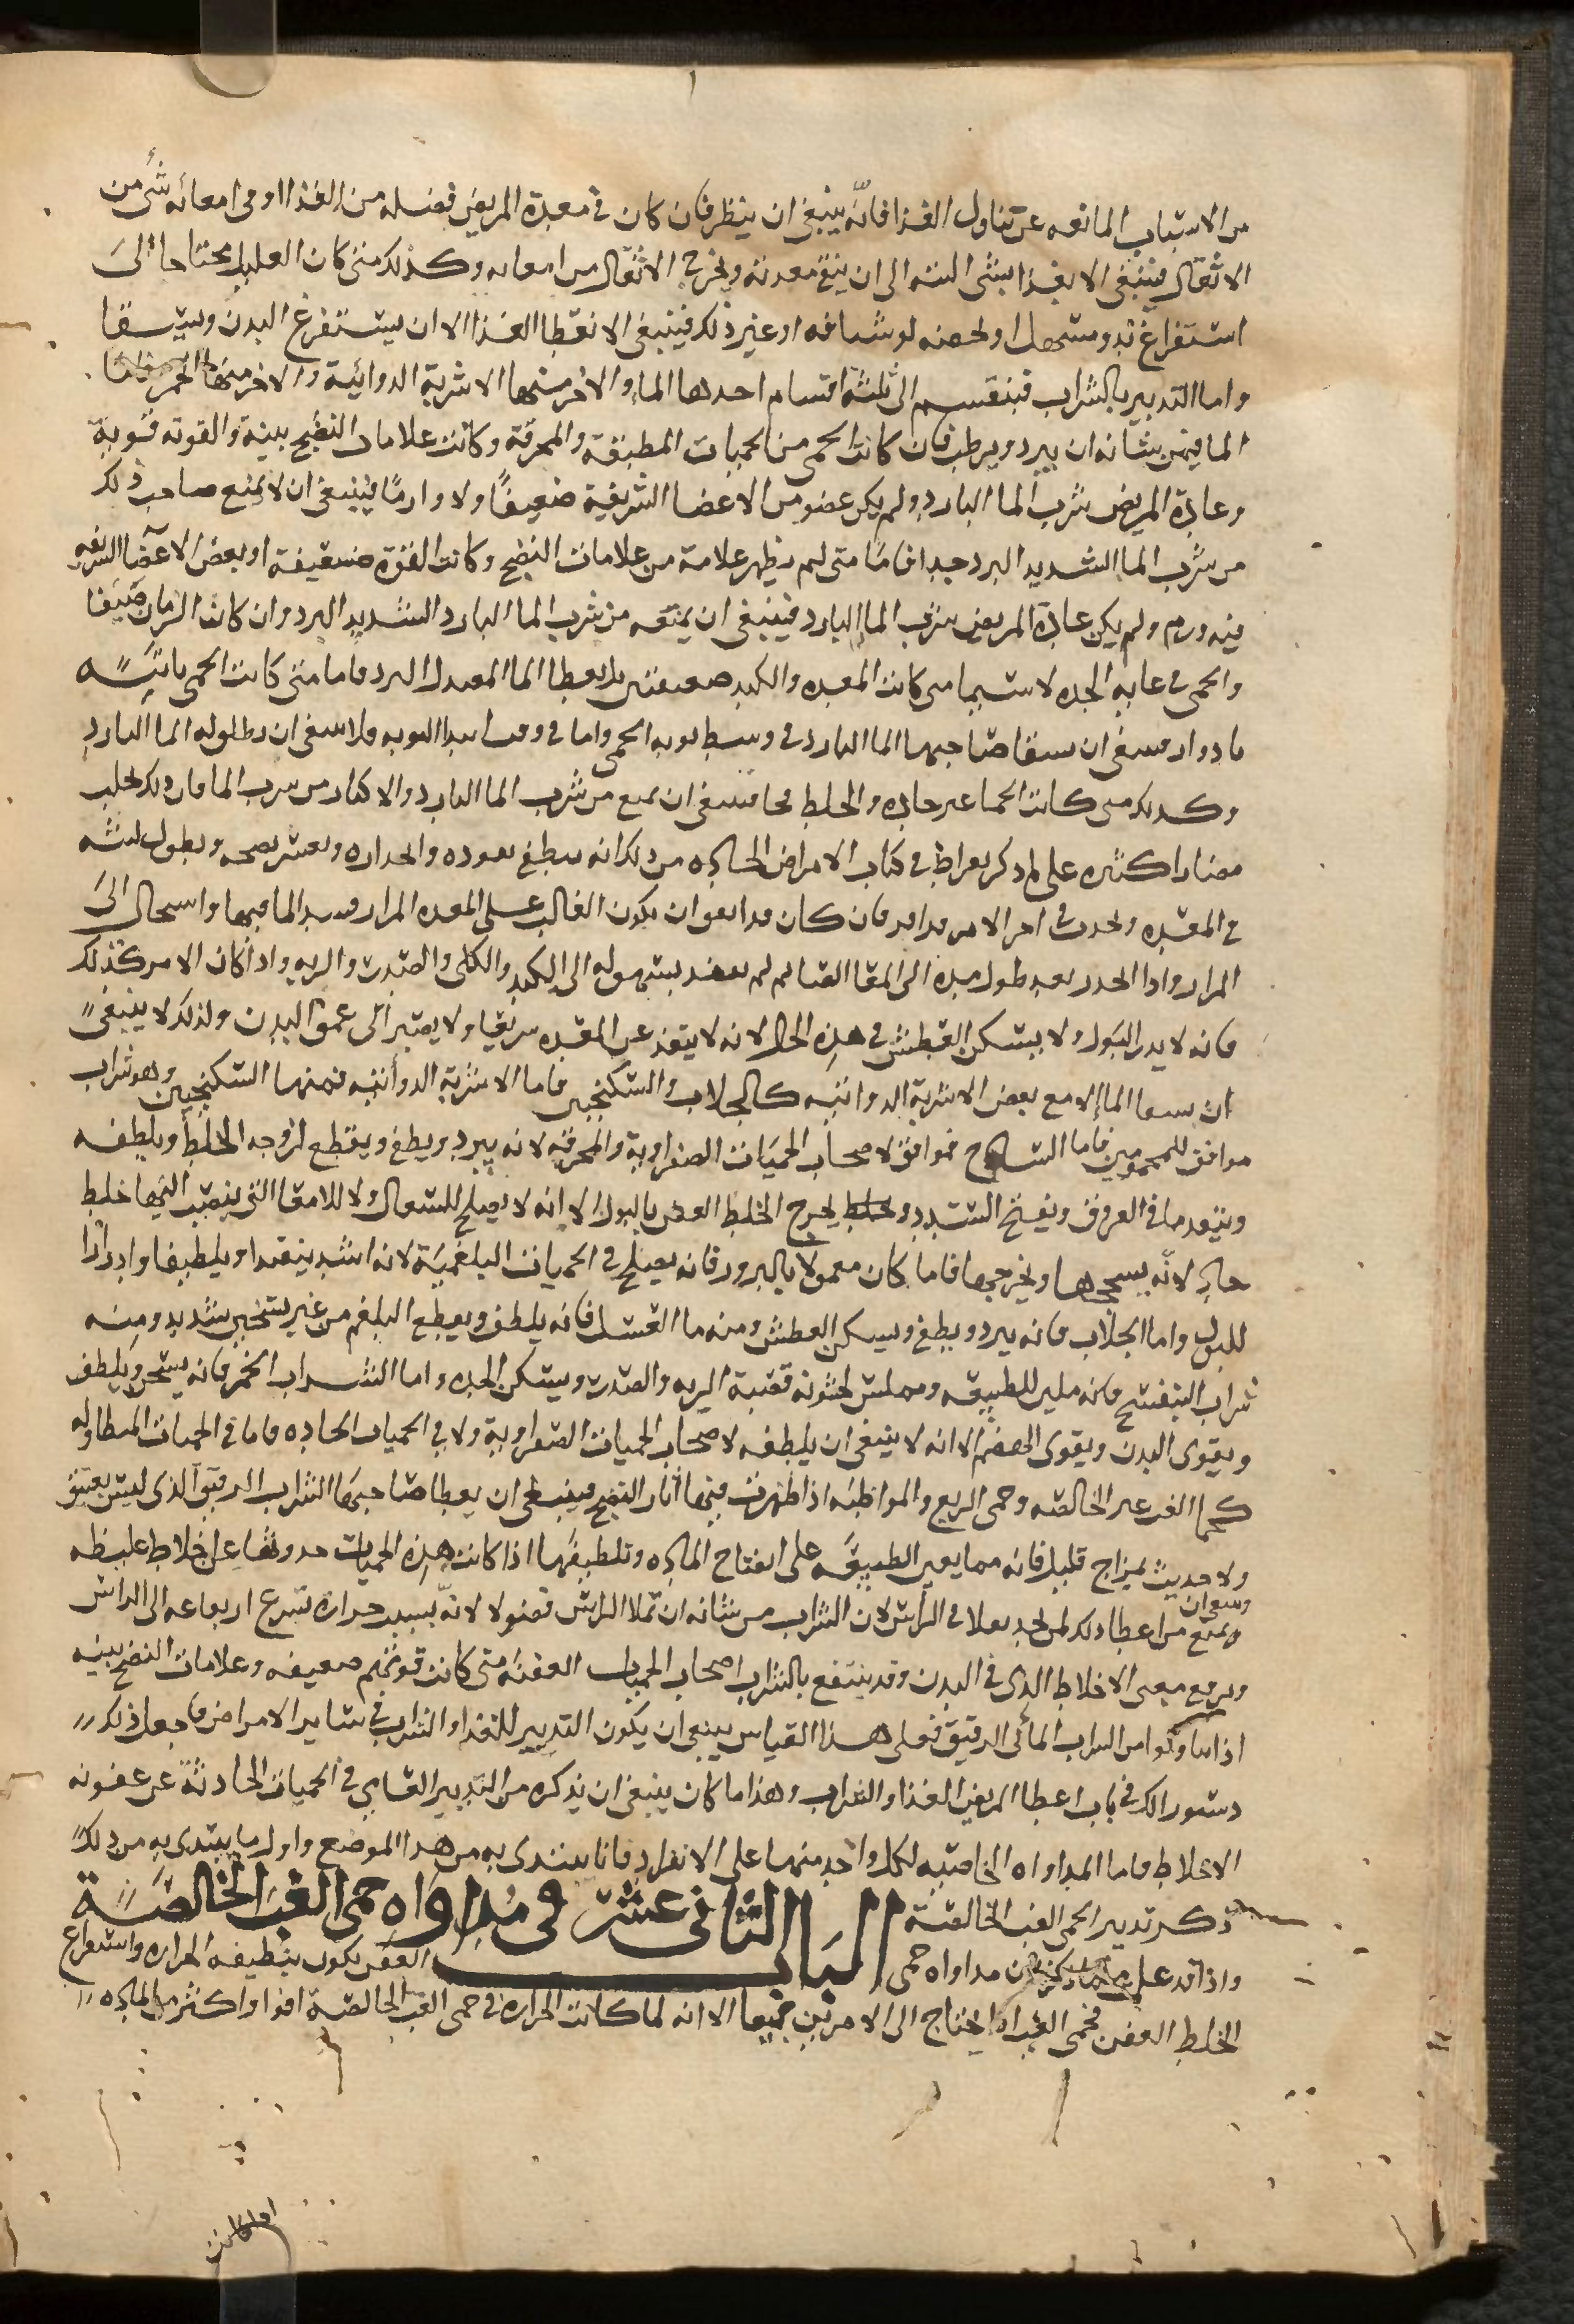 من الاسباب المانعه عن تناول الغذا فانّه ينبغى ان ينظر فان كان فى معدة المريض فضله من الغذا او فى امعائه شىء من
الاثقال فينبغى الا يغذا بشى البته الى ان ينقى معدته ويخرج الاثقال من امعايه وكذلك متى كان العليل محتاجا الى
استفراغ بدوا مسهل او بحقنه او شيافه او غير ذلك فينبغى الا تعطا الغذا الا ان يستفرغ البدن ويتنقا
واما التدبير بالشراب فينقسم الى ثلثة اقسام احدها الما والاخر منها الاشربة الدوائية والاخر منها الخمر فاما
الما فمن شانه ان يبرد ويرطب فان كانت الحمى من الحميات المطبقة والمحرقة وكانت علامات النضج بينة والقوته قوية
وعادة المريض شرب الما البارد ولم يكن عضو من الاعضا الشريفية ضعيفًا ولا وارمًا فينبغى ان لا يمنع صاحب ذلك
من شرب الما الشديد البرد جدا فامّا متى لم يظهر علامة من علامات النضج وكانت القوة ضعيفة او بعض الاعضا الشريفه
فيه ورم ولم يكن عادة المريض شرب الما البارد فينبغى ان يمنعه من شرب الما البارد الشديد البرد وان كان الزمان صيفا
والحمى فى غايه الحده لا سيما متى كانت المعده والكبد ضعيفتين بل يعطا الما المعتدل البرد فاما متى كانت الحمى نايبه
بادوار فينبغى ان يسقا صاحبها الما البارد فى وسط نوبه الحمى واما فى وقت ابتدا النوبه فلا ينبغى ان يطلق له الما البارد
وكذلك متى كانت الحما غير حاده والخلط فجا فينبغى ان يمنع من شرب الما البارد والاكثار من شرب الما فان ذلك يجلب
مضارا كثيره على ما ذكر بقراط فى كتاب الامراض الحاده من ذلك انه يبطى نفوده وانحداره ويعسر نضجه ويطول لبثه
فى المعده ويحدث فى اخر الامر فان كان قد اتفق ان يكون الغالب على المعده المرار فسد الما فيها واستحال الى
المرار واذا انحدر بعد طول مدة الى المعا الصايم لم ينفذ بسهوله الى الكبد والكلى والصدر والريه واذا كان الامر كذلك
فانه لا يدر البول ولا يسكن العطش فى هذه الحال لانه لا ينفذ عن المعده سريعا ولا يصير الى عمق البدن ولذلك لا ينبغى
ان يسقا الما الا مع بعض الاشربة الدوائيه كالجلاب والسكنجبين فاما الاشربة الدوائيه فمنها السكنجبين وهو شراب
موافق للمحمومين فاما الساذج فموافق لاصحاب الحميات الصفراوية والمحرقه لانه يبرد ويطفى ويقطع لزوجه الخلط ويلطفه
وينفذ ما فى العروق ويفتح السدد ويخرج الخلط العفن بالبول الا انه لا يصلح للسعال ولا للامعا التى ينصب اليها خلط
حاد لانّه يسحجها ويخرجها فاما ما كان معمولا بالبرور فانه يصلح فى الحميات البلغمية لانه اشد تنفيذا وتلطيفا وادرارا
للبول واما الجلاب فانه يبرد ويطفى ويسكن العطش ومنه ما العسل فانه يلطف ويقطع البلغم من غير تسخين شديد ومنه
شراب البنفسج فانه ملين للطبيعه ومملس لخشونه قصبة الريه والصدر ويسكن الحده واما الشراب الخمر فانه يسخن ويلطف
ويقوى البدن ويقوى الهضم الا انه لا ينبغى ان يلطفه لاصحاب الحميات الصفراوية ولا فى الحميات الحاده فاما فى الحميات المتطاوله
كحما الغب غير الخالصه وحمى الربع والمواظبه اذا ظهرت فيها اثار النضج فينبغى ان يعطا صاحبها الشراب الرقيق الذى ليس بعتيق
ولا حديث بمزاج قليل فانه مما يعين الطبيعه على انضاج الماده وتلطيفها اذا كانت هذه الحميات حدوثها عن اخلاط غليظه
وينبغى ان
يمتنع من اعطا ذلك لمن يجد ثقلا فى الراس لان الشراب من شانه ان تملا الراس فضولا لانّه يسبب حرارة تسرع ارتفاعه الى الراس
ويرفع معه الاخلاط الذى فى البدن وقد ينتفع بالشراب اصحاب الحميات العفنه متى كانت قوتهم ضعيفه وعلامات النضج بينه
اذا تناولوا من الشراب المائى الرقيق فعلى هذا القياس ينبغى ان يكون التدبير للغذا والشراب فى ساير الامراض فاجعل ذلك
دستورا لك فى باب اعطا المريض الغذا والشراب وهذا ما كان ينبغى ان نذكره من التدبير العامى فى الحميات الحادثة عن عفونه
الاخلاط فاما المداواه الخاصيه لكل واحد منها على الانفراد فانا نبتدى به من هذا الموضع واول ما نبتدى به من ذلك
ذكر تدبير الحمى الغب الخالصة الباب الثانى عشر فى مداواه حمى الغب الخالصة
واذا قد علم مداواه حمى العفن يكون بتطفيه الحراره واستفراغ
الخلط العفن فحمى الغب اذا يحتاج الى الامرين جميعا الا انه لما كانت الحراره فى حمى الغب الخالصة اقوا واكثر من الماده
اذا كانت